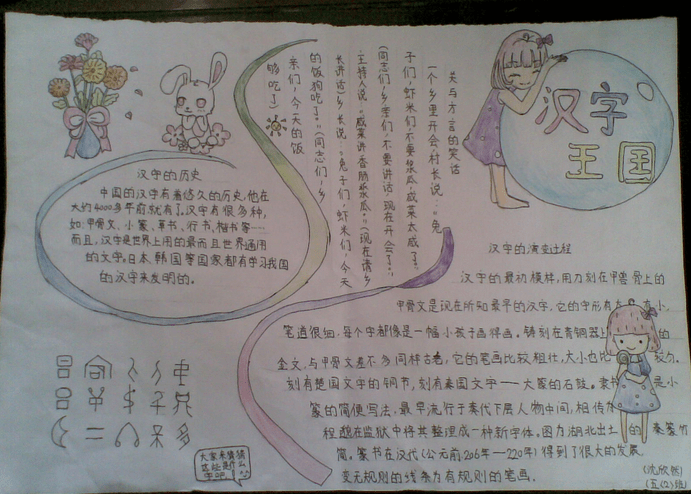 汉字
王国
关与方言的笑话
一个乡里开会,村长说:“兔
子们,虾米们,不要浆瓜,咸菜太咸了。”
(同志们,乡亲们,不要讲话,现在开会了。)
主持人说:“咸菜讲香肠浆瓜。”(现在请乡
长讲话)乡长说:“兔子们,虾米们,今天
的饭狗吃了。”(同志们,乡
亲们,今天的饭
够吃了)
汉字的历史
中国的汉字有着悠久的历史,他在
大约4000多年前就有了,汉字有很多种,
如:甲骨文、小篆、草书、行书、楷书等……
而且,汉字是世界上用的最而且世界通用
的文字。日本、韩国等国家都有学习我国
的汉字来发明的。
汉字的演变过程
汉字的最初模样,用刀刻在甲兽骨上的
甲骨文是现在所知最早的汉字,它的字形有 小,
笔道很细,每个字都像是一幅小孩子画得画。铸刻在青铜器上 的
金文,与甲骨文差不多同样古老,它的笔画比较粗壮,大小也比较
刻有楚国文字的铜节,刻有秦国文字——大篆的石鼓。 是小
篆的简便写法,最早流行于秦代下层人物中间,相传
程邈在监狱中将其整理成一种新字体。图为湖北出土的 秦篆竹
简。篆书在汉代(公元前206年—220年)得到了很大的发展,
变无规则的线条为有规则的笔画。
大家来猜猜
这些是什么
字吧
(沈欣然)
(五(2)班)